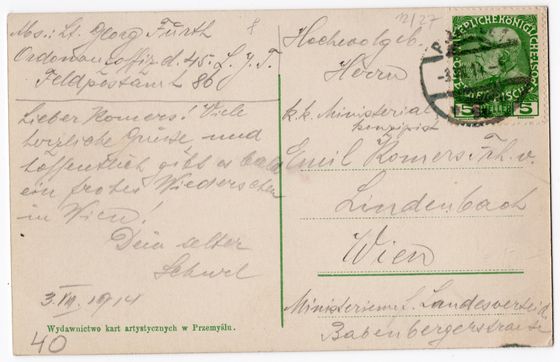 Abs.: Lt. Georg Fürth
Ordonanzoffiz. d. 45. L.J.T.
Feldpostamt 86
Lieber Komers! Viele
herzliche Grüsse, und
hoffentlich gibt es bald
ein frohes Wiedersehen
in Wien!
Dein alter
3. 1914
Wydawnictwo kart artystycznych w Przemyślu.
40
12/27
Hochwolgeb.
Herrn
k.k. Ministerial
konzipist
Emil Komers Frh. v.
Lindenbach
Wien
Ministerium f. Landesverteid.
Babenbergerstrasse
5 5